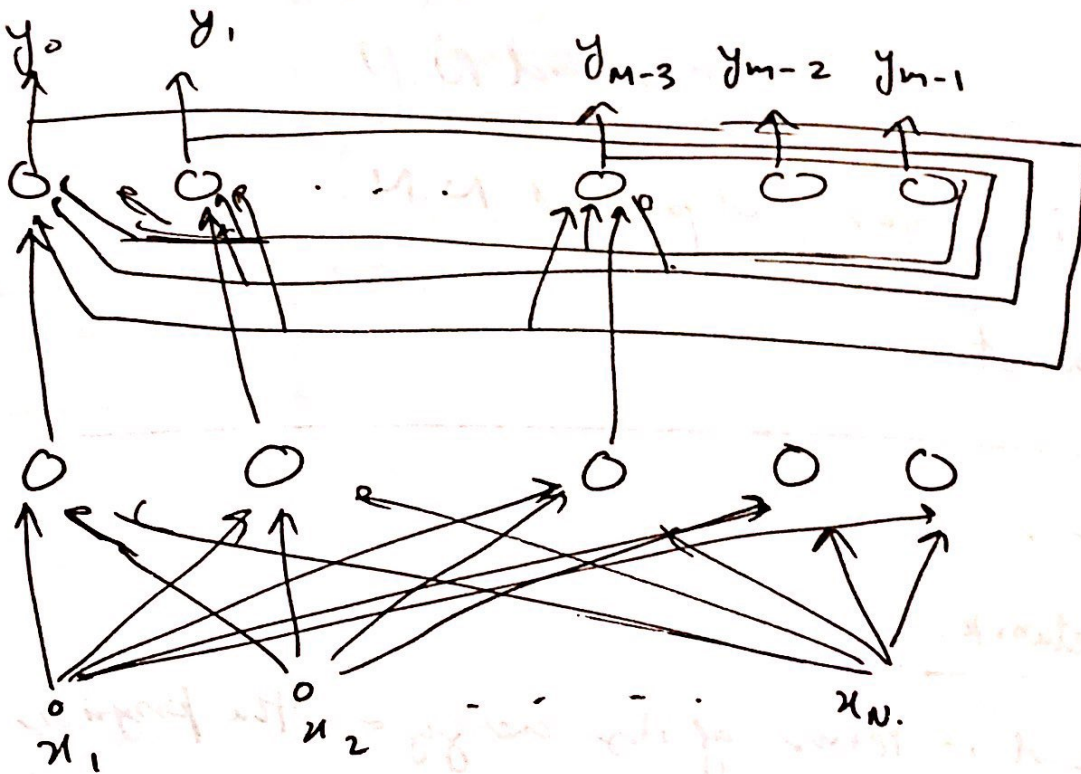 y0 y1 yM-3 ym-2 ym-1
x1 x2 xN.